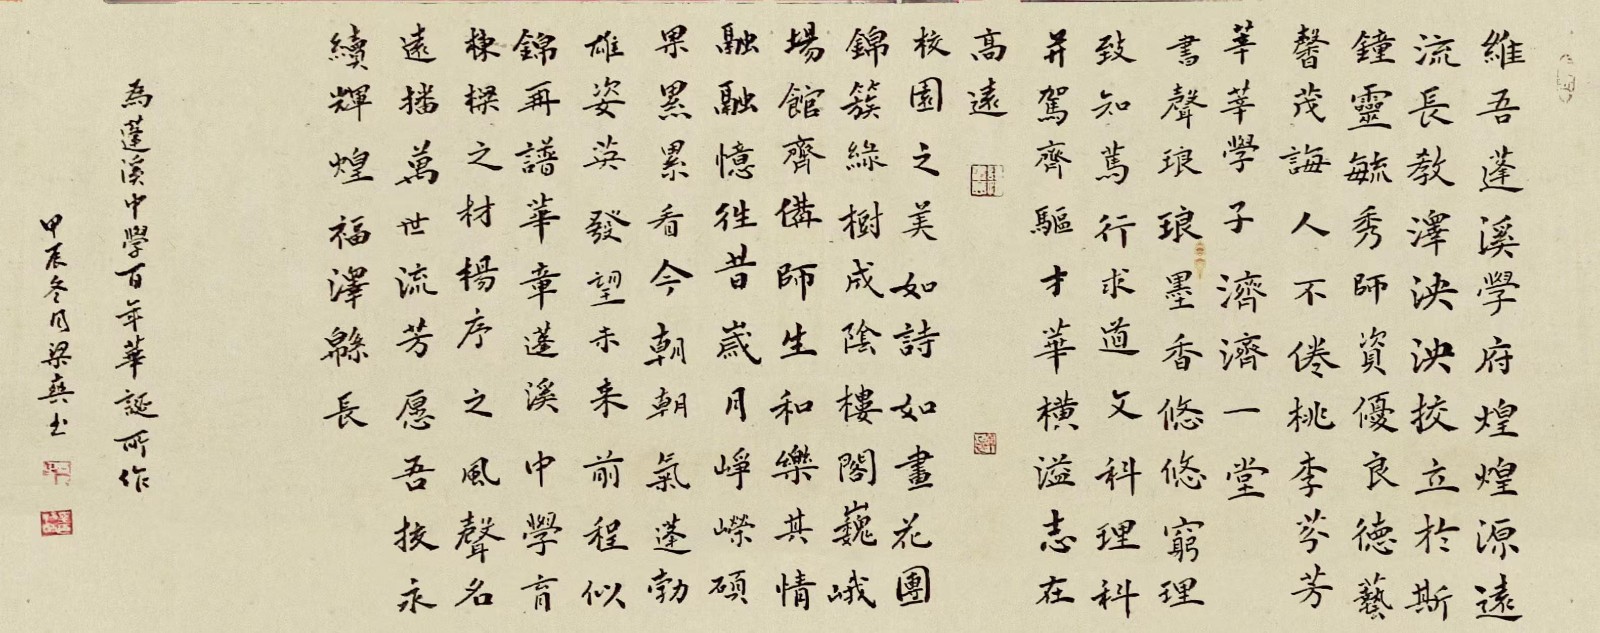 維吾蓬溪學府煌煌源遠
流長教澤泱泱挍立於斯
鐘靈毓秀師資優良德藝
馨茂誨人不倦桃李芬芳
莘莘學子濟濟一堂
書聲琅琅墨香悠悠窮理
致知篤行求道文科理科
并駕齊驅才華橫溢志在
高遠
校園之美如詩如畫花團
錦簇綠樹成陰樓閣巍峨
場館齊備師生和樂其情
融融憶往昔歲月崢嶸碩
果累累看今朝朝氣蓬勃
雄姿英發望未来前程似
錦再譜華章蓬溪中學育
棟樑之材楊序之風聲名
遠播萬世流芳愿吾挍永
續輝煌福澤緜長
為蓬溪中學百年華誕所作
甲辰冬月梁爽书